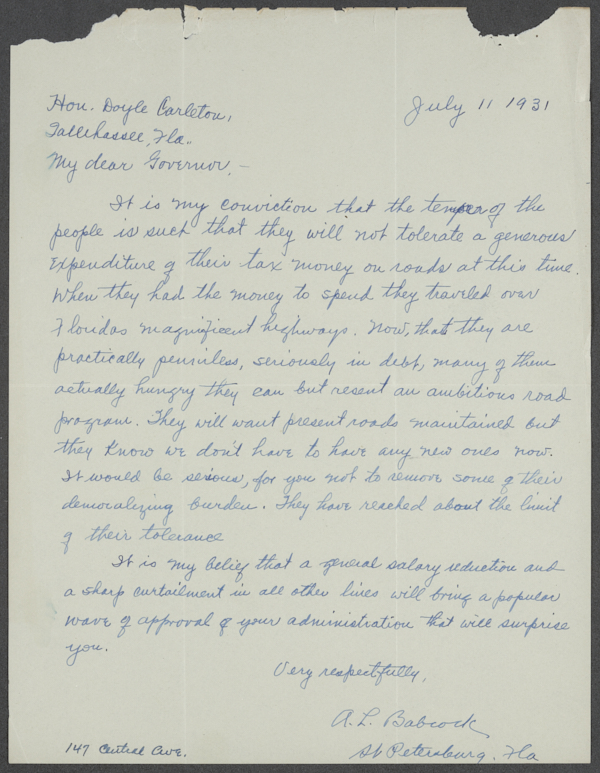 July 11 1931
Hon. Doyle Carleton,
Tallehassee, Fla..
My dear Governor, -
It is my conviction that the temper of the
people is such that they will not tolerate a generous
expenditure of their tax money on roads at this time.
When they had the money to spend they traveled over
Floridas magnificent highways. Now, that they are
practically penniless, seriously in debt, many of them
actually hungry they can but resent an ambitious road
program. They will want present roads maintained but
they know we don't have to have any new ones now.
It would be serious, for you not to remove some of their
demoralizing burden. They have reached about the limit
of their tolerance
It is my belief that a general salary reduction and
a sharp curtailment in all other lines will bring a popular
wave of approval of your administration that will surprise
you.
Very respectfully,
A. L. Babcock
147 Central Ave.
St Petersburg. Fla